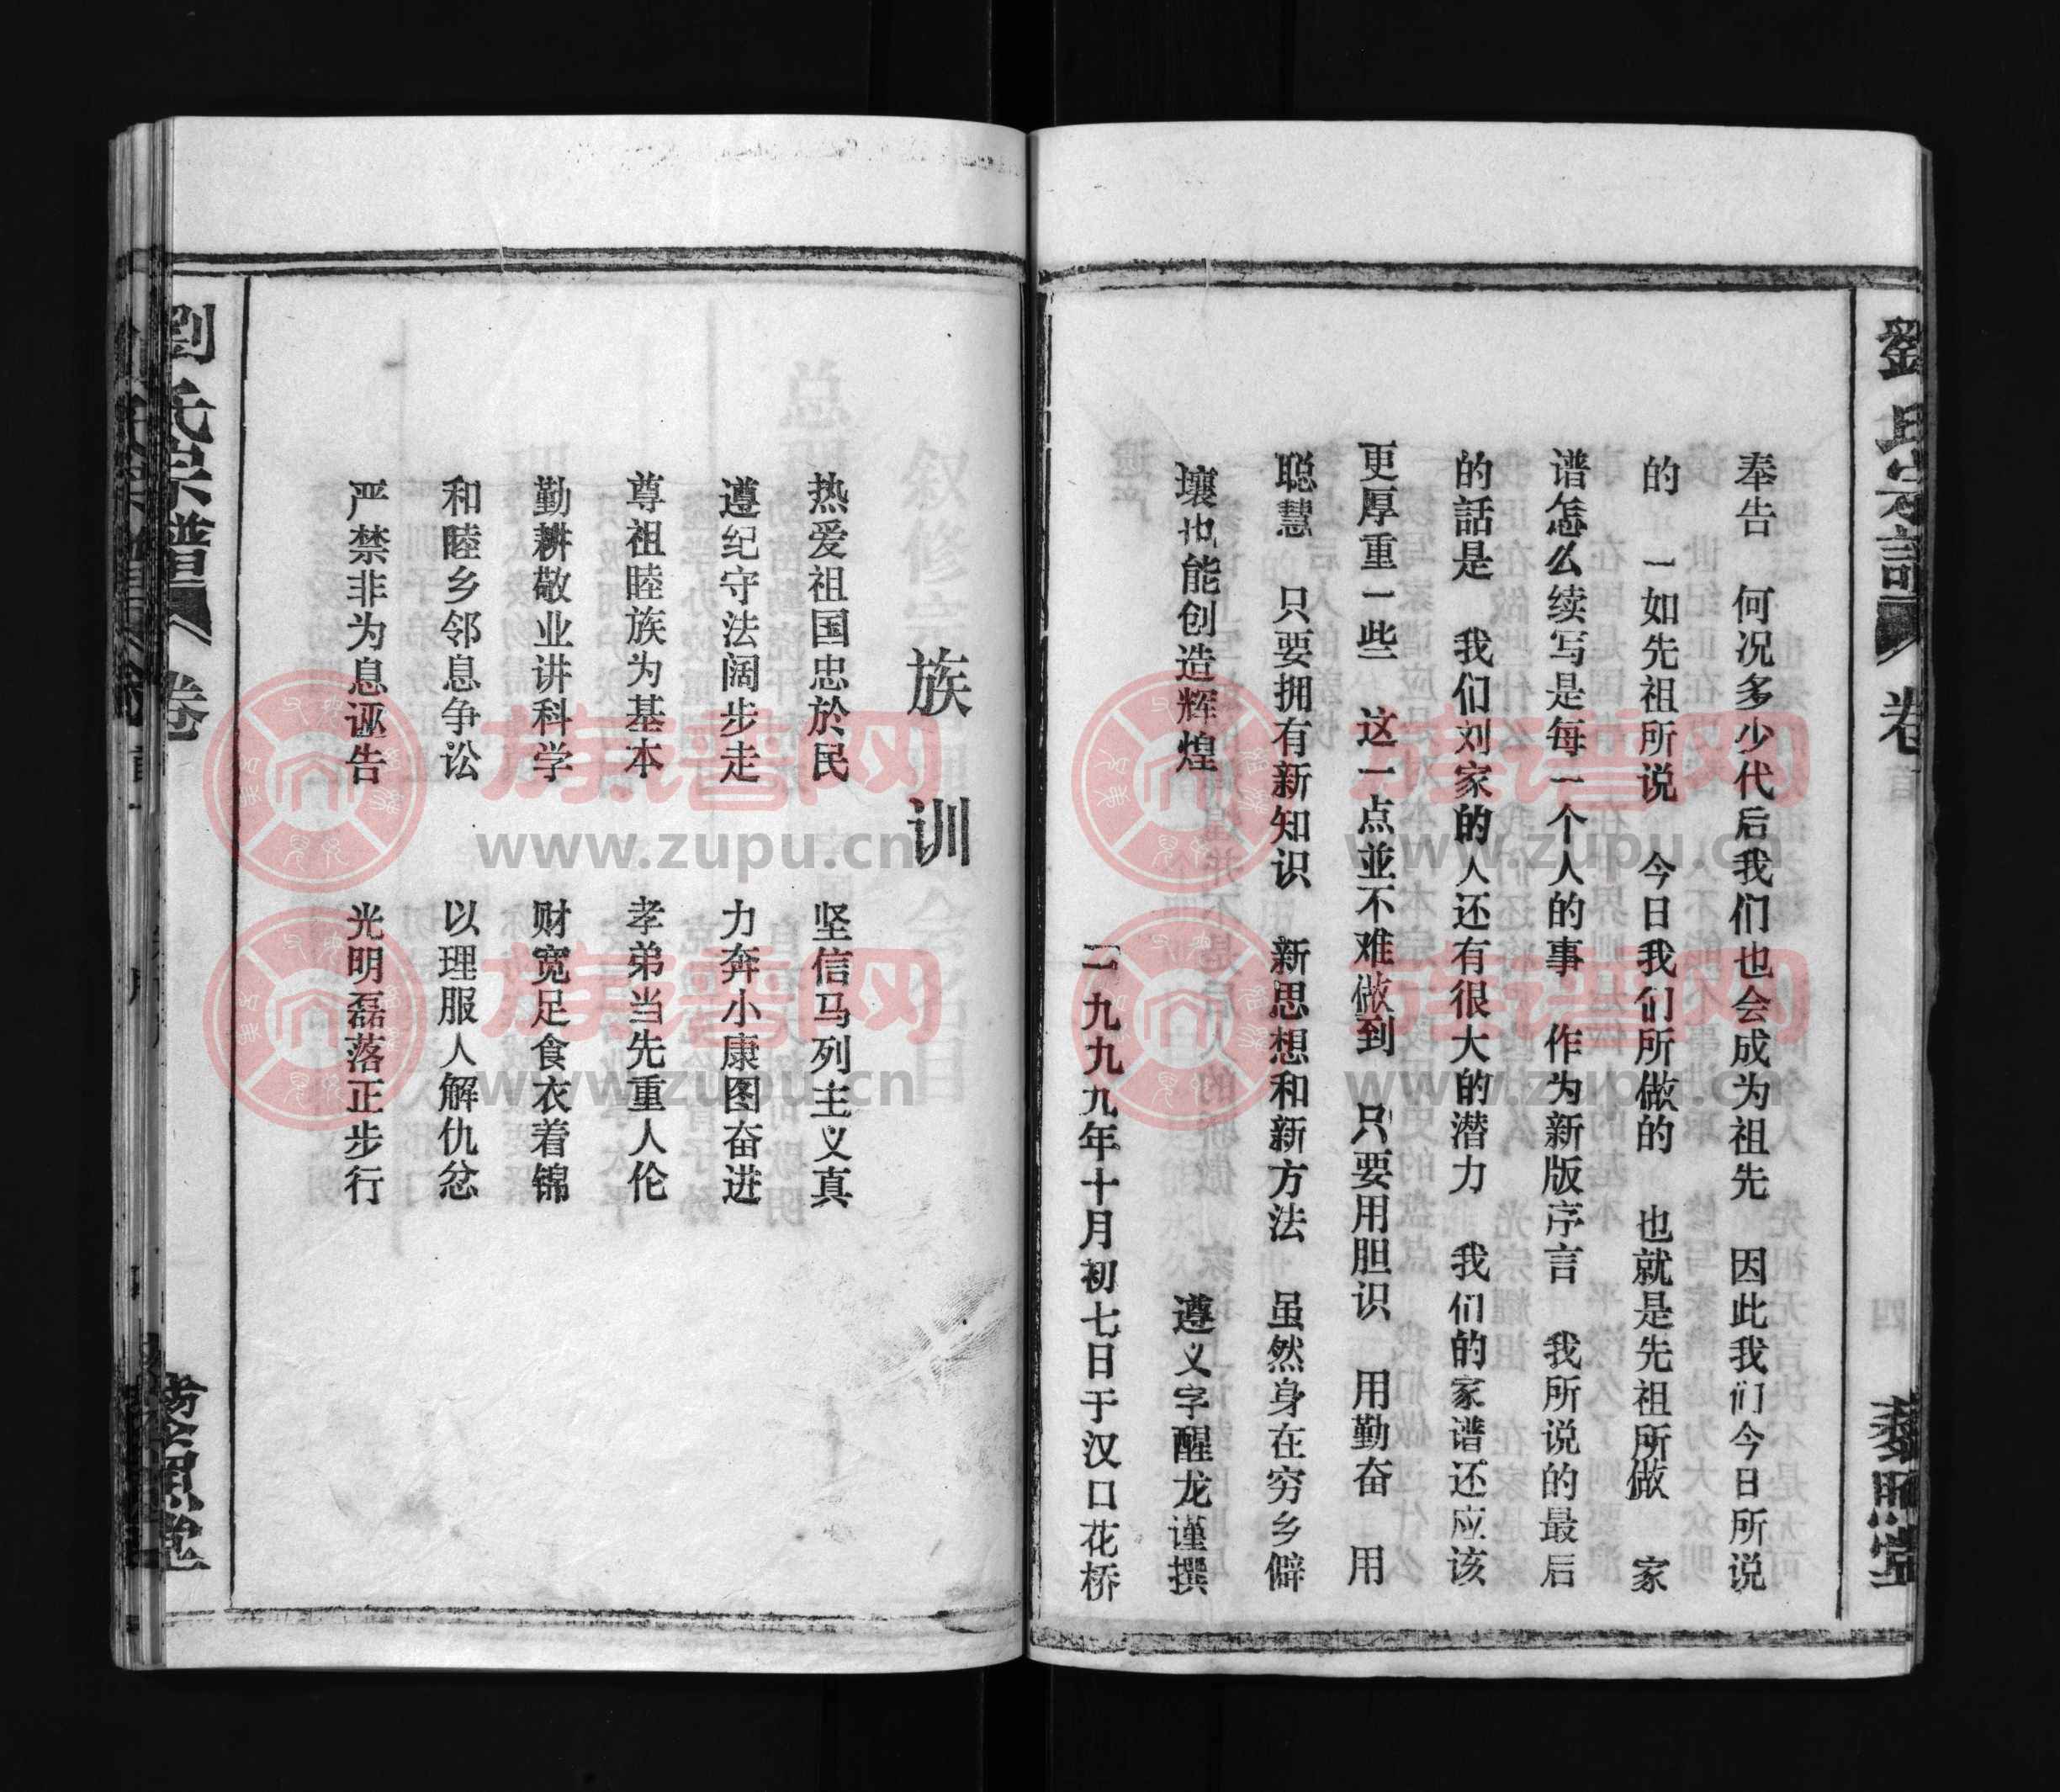 劉氏宗譜 卷首 四 藜照堂
奉告 何况多少代后我们也会成为祖先 因此我们今日所说
的 一如先祖所说 今日我们所做的 也就是先祖所做 家
谱怎么续写是每一个人的事 作为新版序言 我所说的最后
的話是 我们刘家的人还有很大的潜力 我们的家谱还应该
更厚重一些 这一点並不难做到 只要用胆识 用勤奋 用
聪慧 只要拥有新知识 新思想和新方法 虽然身在穷乡僻
壤也能创造辉煌 遵义字醒龙谨撰
一九九九年十月初七日于汉口花桥
族训
热爱祖国忠於民 坚信马列主义真
遵纪守法阔步走 力奔小康图奋进
尊祖睦族为基本 孝弟当先重人伦
勤耕敬业讲科学 财宽足食衣着锦
和睦乡邻息争讼 以理服人解仇忿
严禁非为息诬告 光明磊落正步行
劉氏宗譜 卷 藜照堂
族谱网
www.zupu.cn
族谱网
www.zupu.cn
族谱网
www.zupu.cn
族谱网
www.zupu.cn